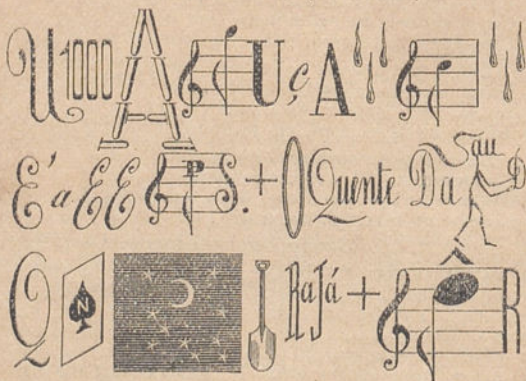 U 1000 A U ç A
E' a E E P S. + O Quente Da Sau D
Q N RaJá + R